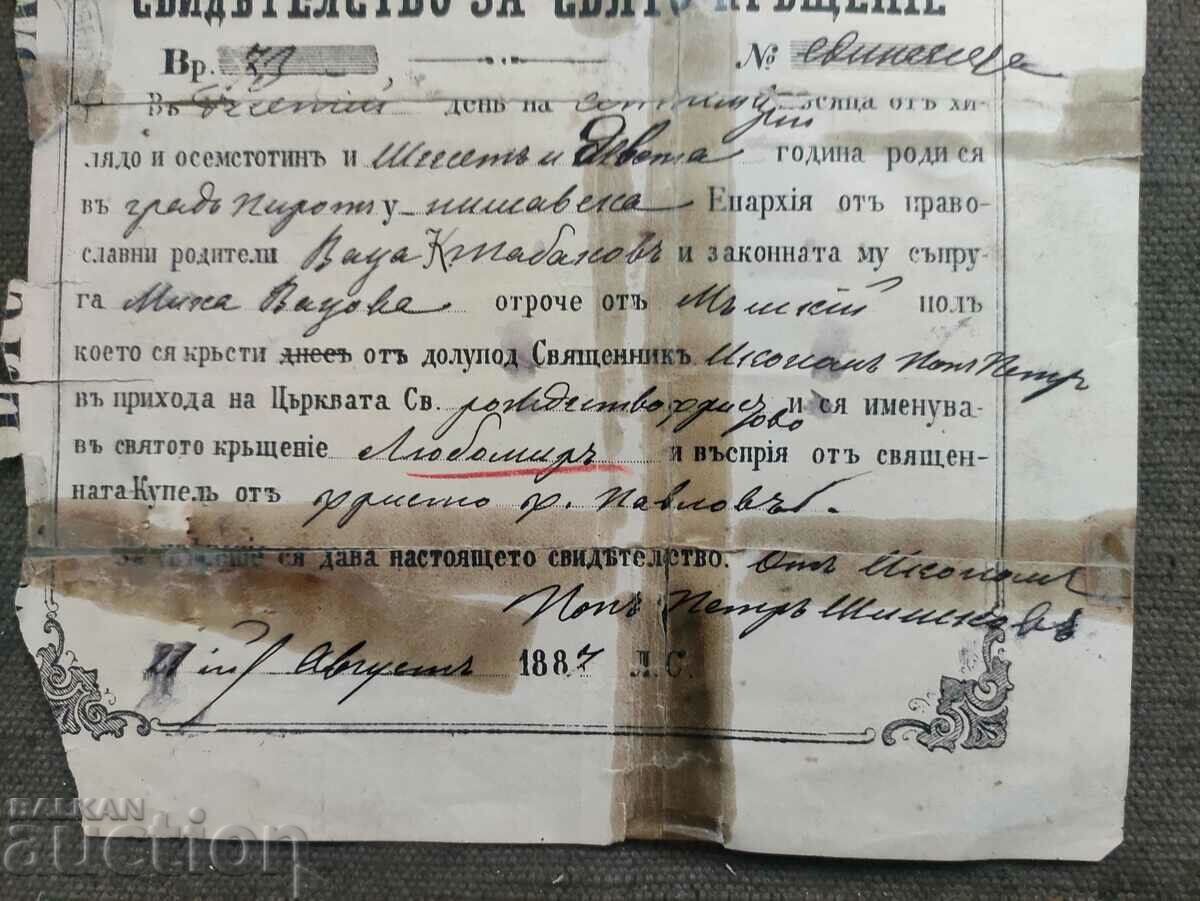 СВИДѢТЕЛСТВО ЗА СВЯТО КРЪЩЕНІЕ
Вр. 73 № единнеца
Въ день на месяца отъ хи-
лядо и осемстотинъ и Шесеть и Девета година роди ся
въ градъ Пиротъ у нишавска Епархія отъ право-
славни родители Ваца К Табаковъ и законната му съпру-
га Мика Вацова отроче отъ Мъшкій полъ
което ся кръсти днесъ отъ долупод Священникъ Икономъ Попъ Петъръ
въ прихода на Църквата Св. рождество христово и ся именува-
въ святото кръщеніе Любомиръ и въспрія отъ священ-
ната Купель отъ христо х. Павловъ.
ся дава настоящето свидѣтелство. Отъ Икономъ
Попъ Петръ Шишковъ
Августъ 1887 Л. С.
BALKAN
auction